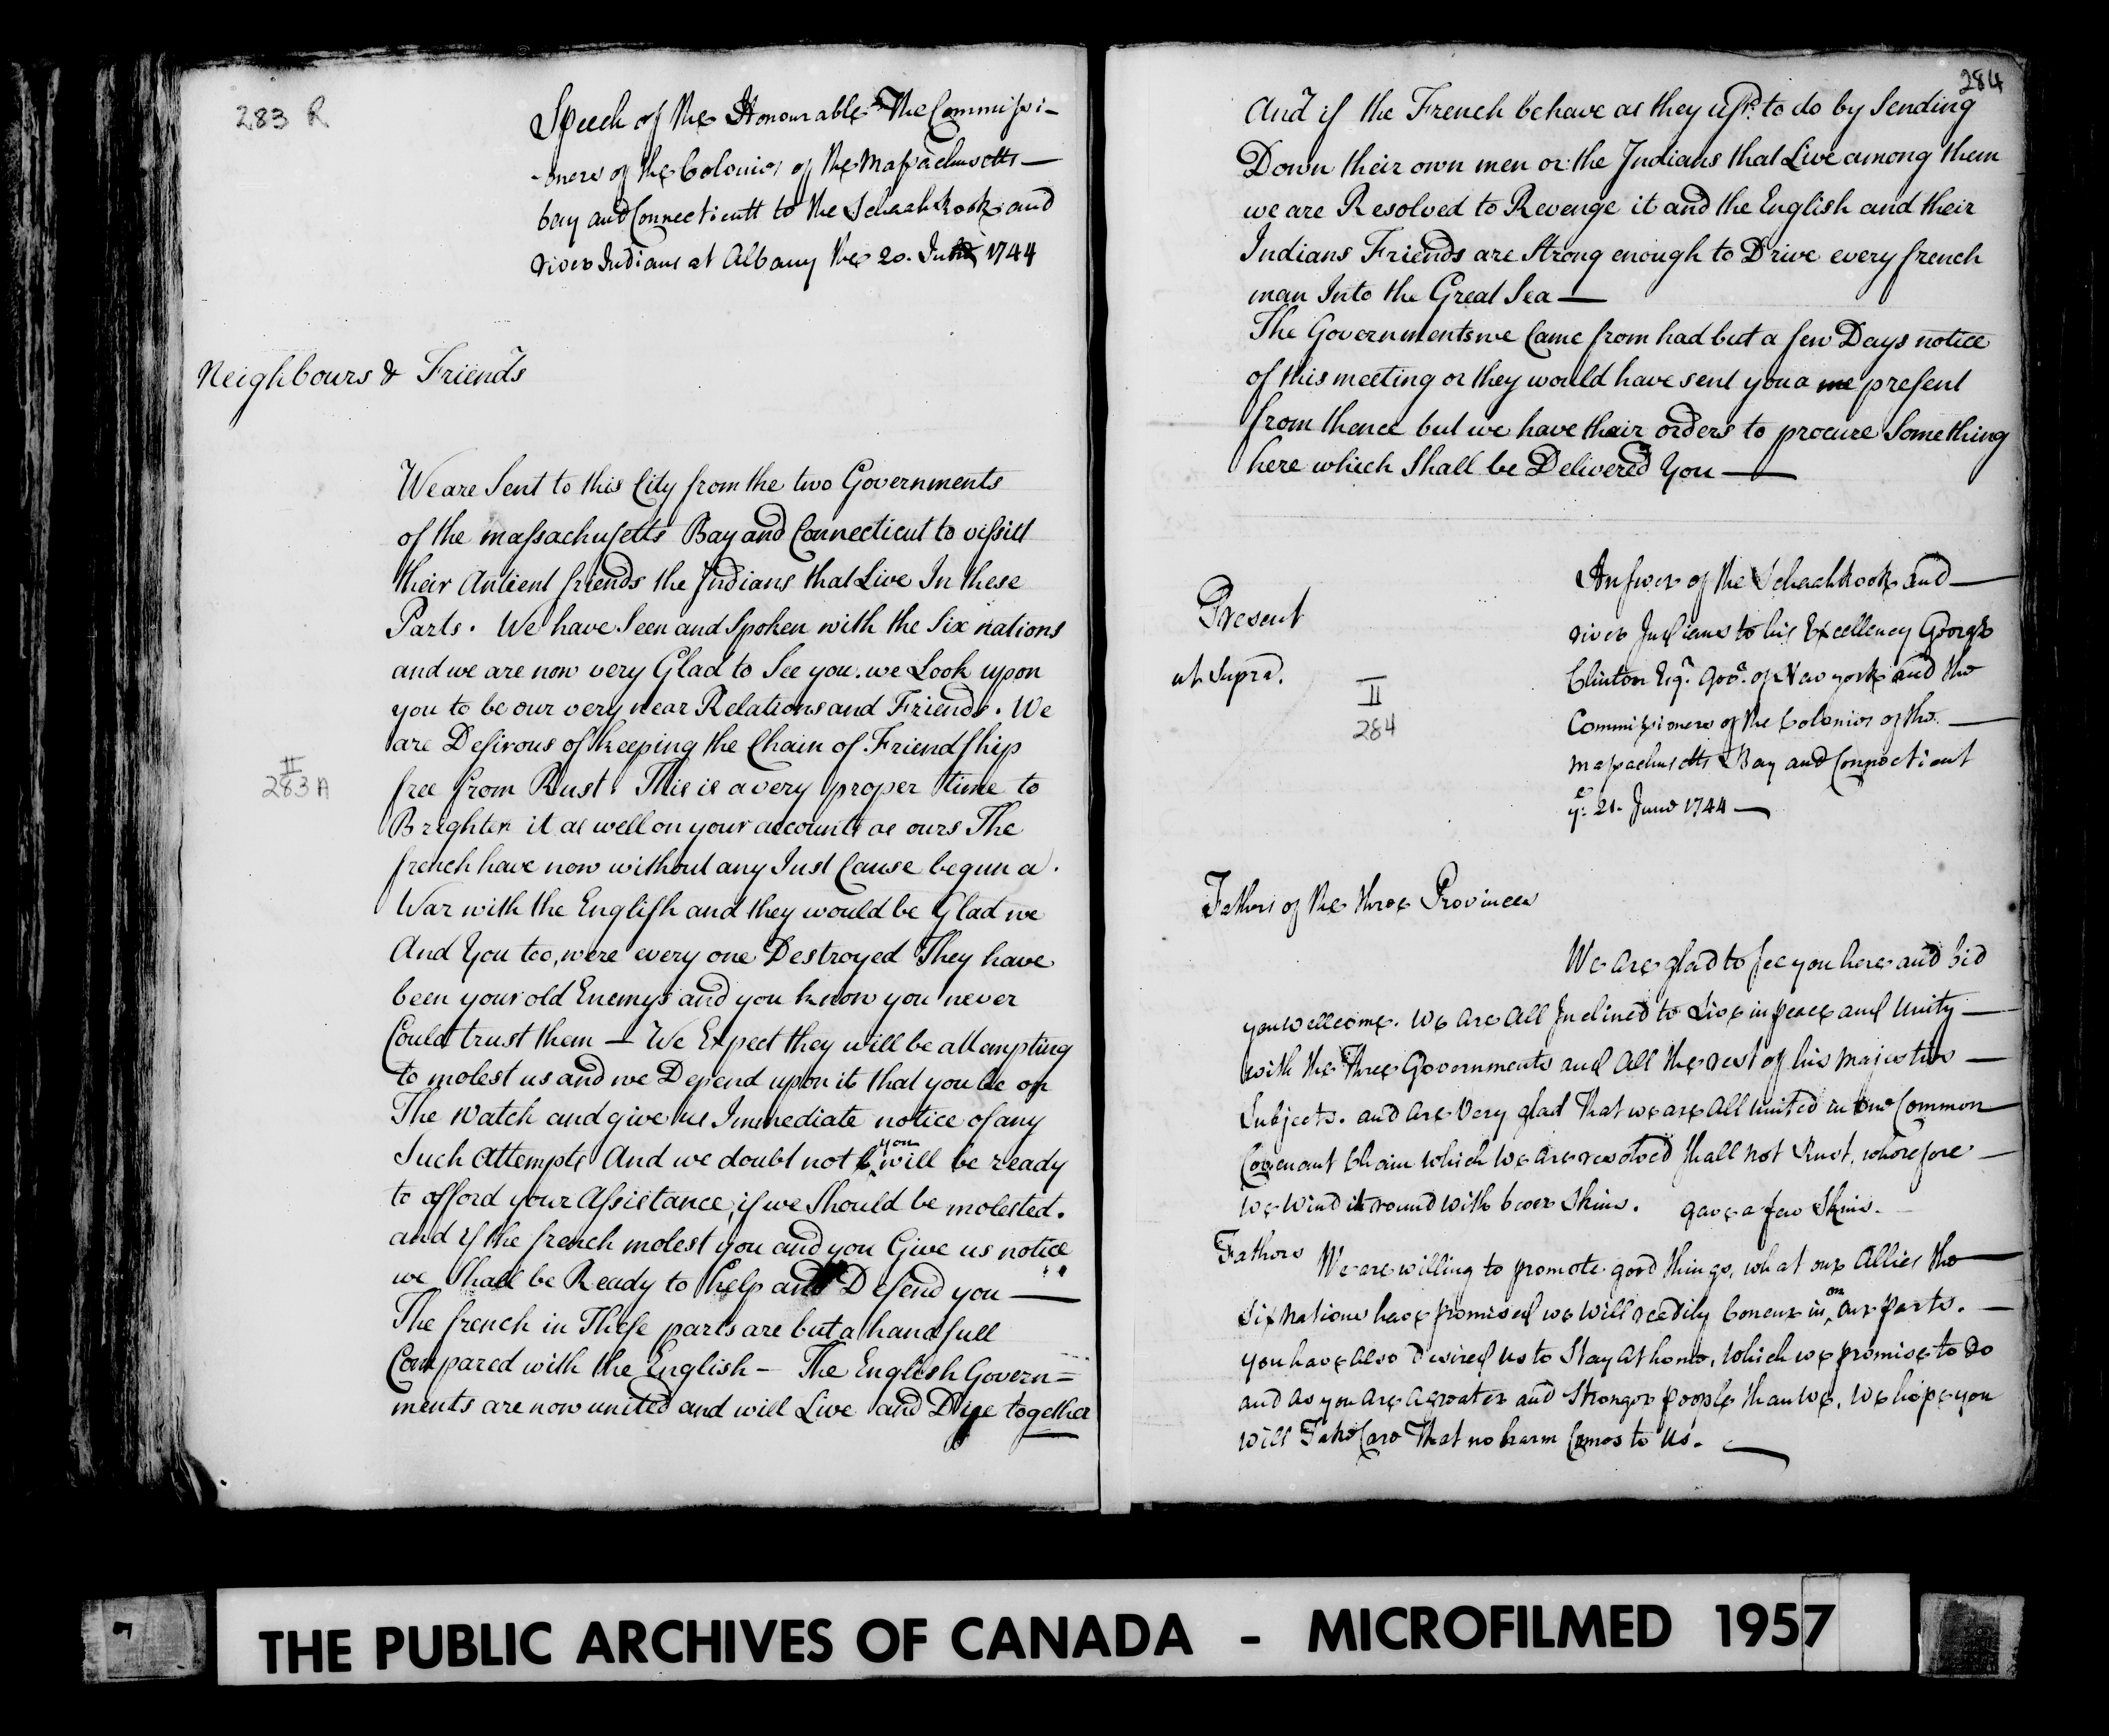 283 R
Speech of the Honourable The Commissi-
-oners of the Colonies of the Massachusetts —
bay and Connecticutt to the Schaahkook and
river Indians at Albany the 20. June 1744
Neighbours & Friends
We are Sent to this City from the two Governments
of the massachusetts Bay and Connecticut to vissitt
their Antient friends the Indians that Live In these
Parts. We have Seen and Spoken with the Six nations
and we are now very Glad to See you. we Look upon
you to be our very near Relations and Friends. We
are Desirous of keeping the Chain of Friendship
II
283 A
free from Rust. This is a very proper time to
Brighten it as well on your accounts as ours The
french have now without any Just Cause begun a
War with the English and they would be Glad we
And You too, were every one Destroyed They have
been your old Enemys and you know you never
Could trust them — We Expect they will be attempting
to molest us and we Depend upon it that you be on
The Watch and give us Immediate notice of any
Such Attempts And we doubt not you will be ready
to afford your Assistance, if we Should be molested.
and if the french molest you and you Give us notice
we Shall be Ready to help and Defend you —
The french in These parts are but a handfull
Compared with the English — The English Govern=
ments are now united and will Live and Dye together
284
And if the French behave as they usd. to do by Sending
Down their own men or the Indians that Live among them
we are Resolved to Revenge it and the English and their
Indians Friends are Strong enough to Drive every french
man Into the Great Sea —
The Governments we Came from had but a few Days notice
of this meeting or they would have sent you a me present
from thence but we have thair orders to procure Something
here which Shall be Delivered You —
Present
ut Supra.
II
284
Answer of the Schaahkook and —
river Indians to his Excellency George
Clinton Esqr. Govr. of New york and the
Commissioners of the Colonies of the —
Massachusetts Bay and Connecticut
ye. 21. June 1744 —
Fathers of the three Provinces
We are glad to see you here and bid
you wellcome. We are All Inclined to Live in peace and Unity —
with the Three Governments and All the rest of his majesties —
Subjects. and are Very glad That we are All united in one Common
Covenant Chain which we are resolved shall not Rust, wherefore —
we wind it round with bever Skins. gave a few Skins.
Fathers We are willing to promote good things, what our Allies the —
Six nations have promised we will readily Concur in, on our parts. —
you have also Desired us to Stay at home, which we promise to do
and as you are a greater and Stronger people than we, we hope you
will Take Care That no harm Comes to us. —
THE PUBLIC ARCHIVES OF CANADA - MICROFILMED 1957